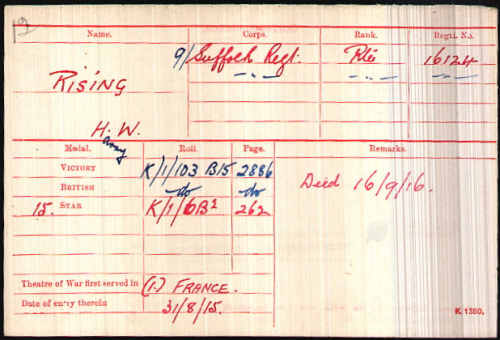 Name. Corps. Rank. Regtl. No.
9/Suffolk Regt. Pte 16124
RISING
-"- -"- -"-
H.W.
arry
Medal. Roll. Page. Remarks.
VICTORY K/1/103 B15 2886
BRITISH -do- -do-
Died 16/9/16.
15. STAR K/1/6B² 262
Theatre of War first served in (1.) FRANCE.
Date of entry therein 31/8/15.
K. 1380.